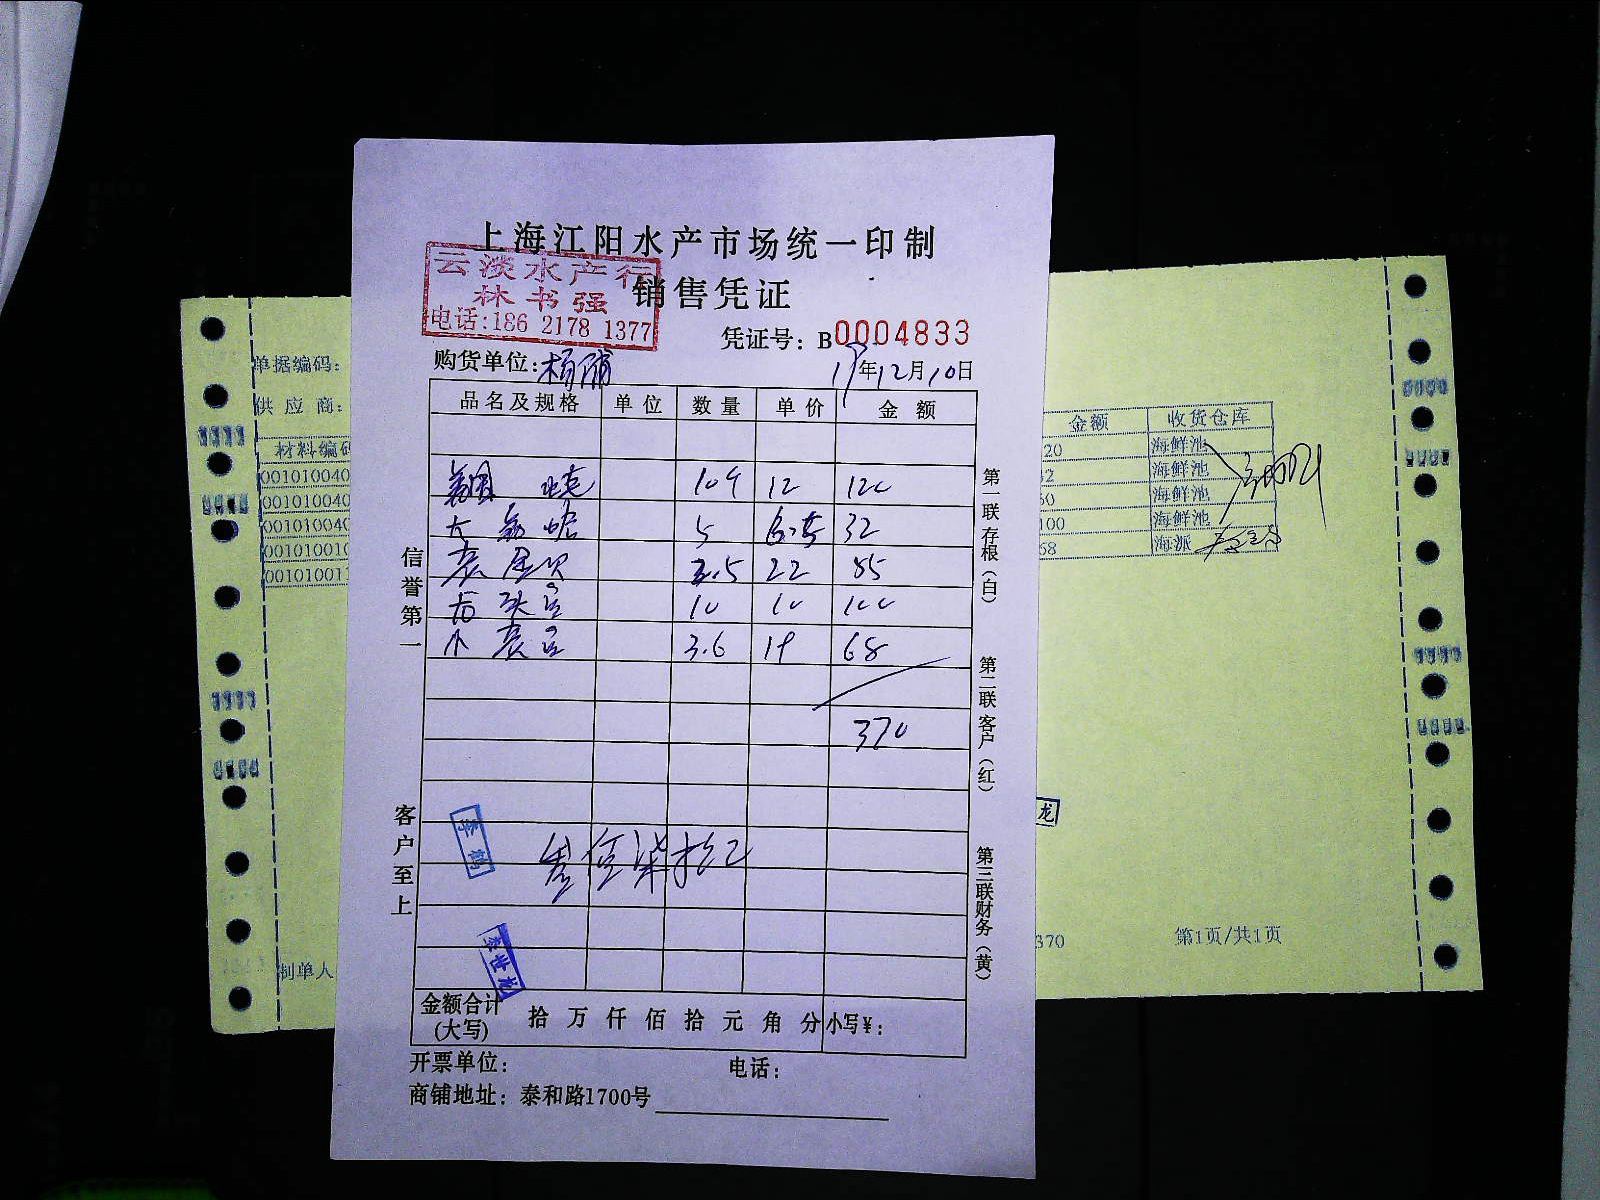 上海江阳水产市场统一印制
云淡水产行
林书强
电话:186 2178 1377
销售凭证
凭证号：B0004833
购货单位:杨浦
19年12月10日
品名及规格 单位 数量 单价 金额
12 120
大 5 6.5 32
3.5 22
10 10 100
小 3.6 19 68
370
叁佰柒拾元
李鹤
金额合计(大写) 拾 万 仟 佰 拾 元 角 分 小写¥：
开票单位： 电话：
商铺地址：泰和路1700号
信誉第一
客户至上
第一联存根（白）
第二联客户（红）
第三联财务（黄）
单据编码：
供应商：
材料编码
001010040
001010040
001010040
00101001
制单人
金额 收货仓库
20 海鲜池
32 海鲜池
海鲜池
100 海鲜池
68 海派
龙
370
第1页/共1页